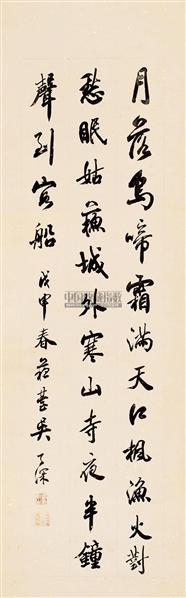 月落烏啼霜滿天江楓漁火對
愁眠姑蘇城外寒山寺夜半鐘
聲到客船 戊申春蘇臺吳子深